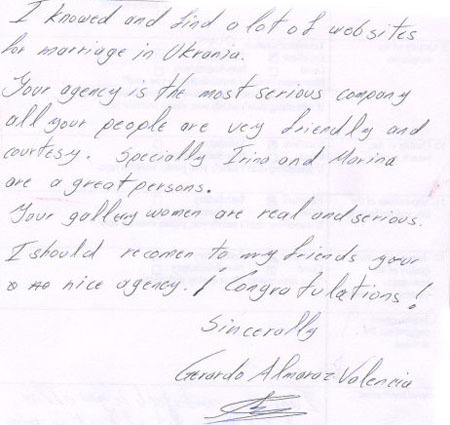 I knowed and find a lot of web sites
for marriage in Ukrania.
Your agency is the most serious company
all your people are very friendly and
courtesy. Specially Irina and Marina
are a great persons.
Your gallery women are real and serious.
I should recomen to my friends your
nice agency. ¡ Congratulations !
Sincerally
Gerardo Almaraz Valencia